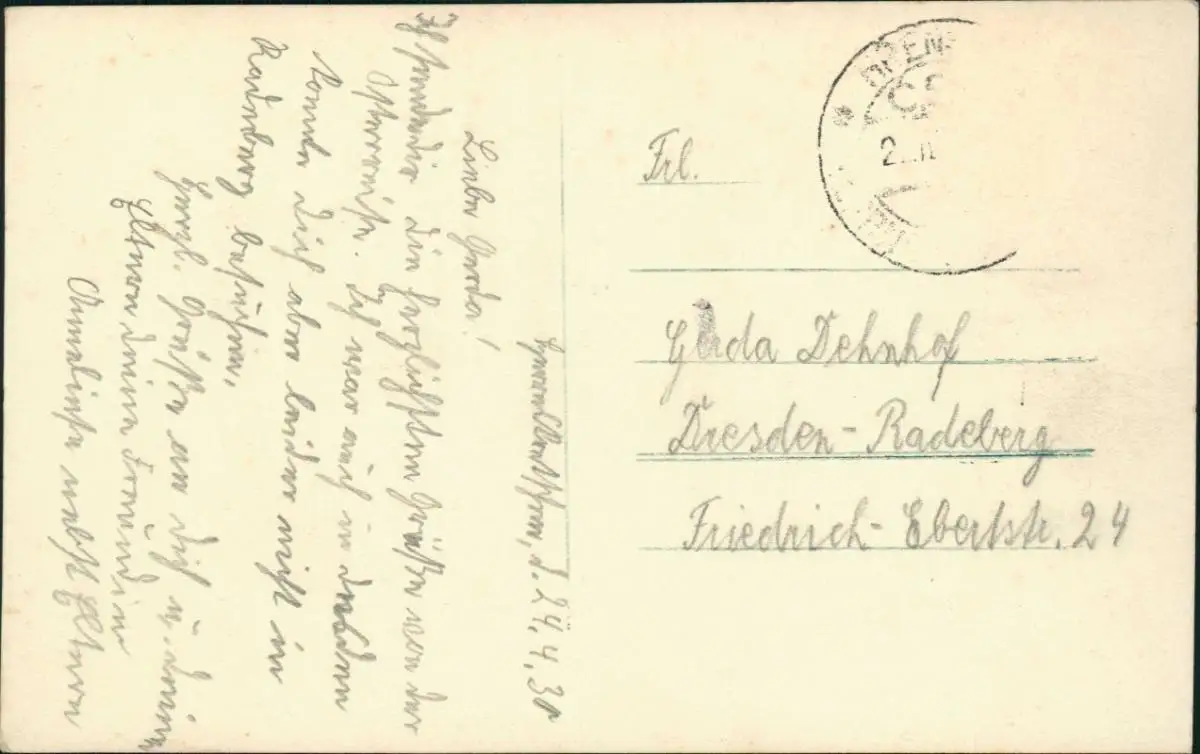 d. 24.4.30
Liebe Gerda!
Ich sende dir die herzlichsten Grüße von der
Osterreise. Ich war auch in Dresden
konnte dich aber leider nicht in
Radeberg besuchen.
Herzl. Grüße an dich u. deine
Eltern deine Freundin
Anneliese nebst Eltern
Frl.
Gerda Dehnhof
Dresden-Radeberg
Friedrich-Ebertstr. 24